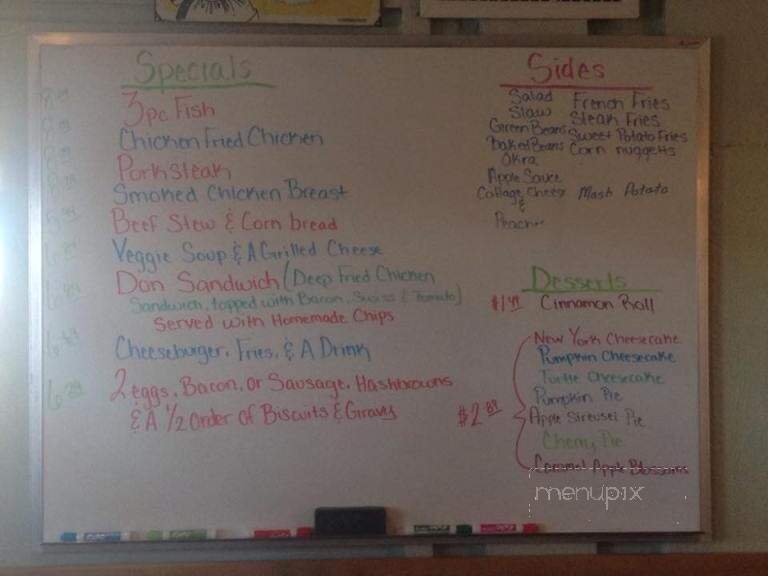 Specials
3pc Fish
Chicken Fried Chicken
Porksteak
Smoked Chicken Breast
Beef Stew & Corn bread
Veggie Soup & A Grilled Cheese
Don Sandwich (Deep Fried Chicken
Sandwich, topped with Bacon, Swiss & Tomato)
Served with Homemade Chips
Cheeseburger, Fries, & A Drink
2 eggs, Bacon, or Sausage, Hashbrowns
& A 1/2 Order of Biscuits & Gravy
Sides
Salad French Fries
Slaw Steak Fries
Green Beans Sweet Potato Fries
Baked Beans Corn nuggetts
Okra
Apple Sauce
Cottage Cheese Mash Potato
&
Peaches
Desserts
Cinnamon Roll
New York Cheesecake
Pumpkin Cheesecake
Turtle Cheesecake
Pumpkin Pie
$2.89
Apple Streusel Pie
Cherry Pie
Caramel Apple Blossoms
menupix